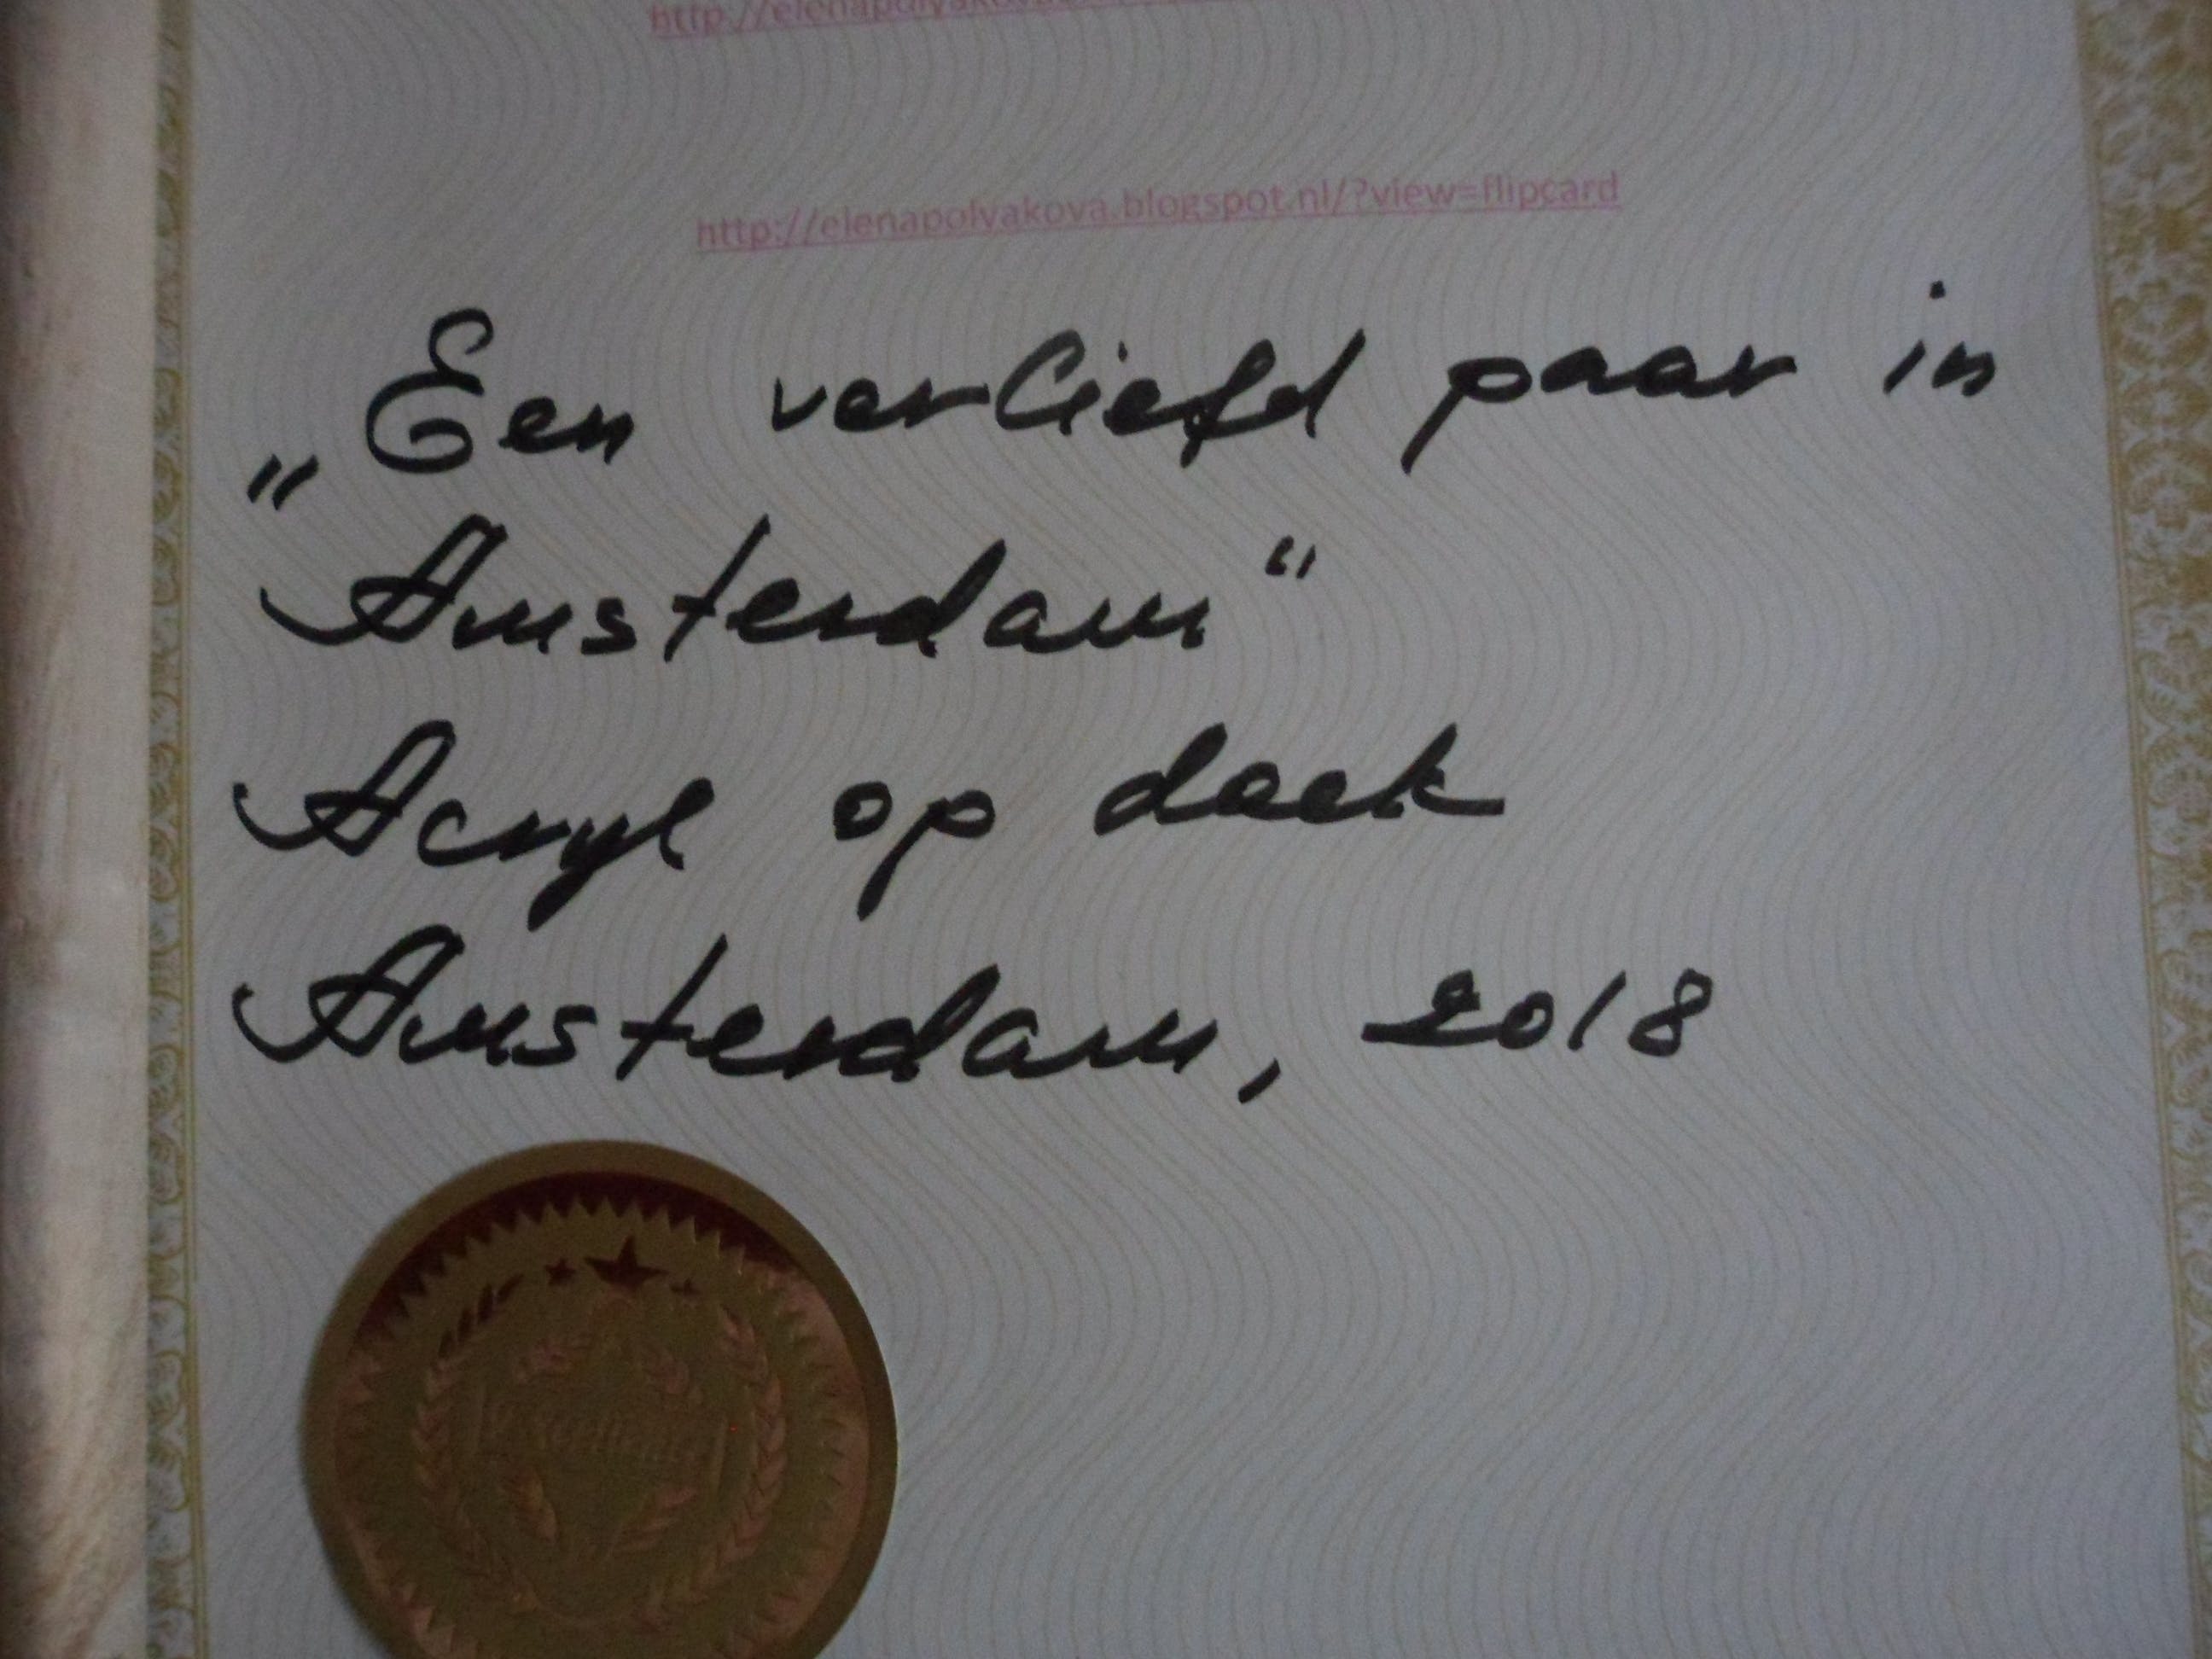 http://elenapolyakova
http://elenapolyakova.blogspot.nl/?view=flipcard
„Een verliefd paar in
Amsterdam“
Acryl op doek
Amsterdam, 2018